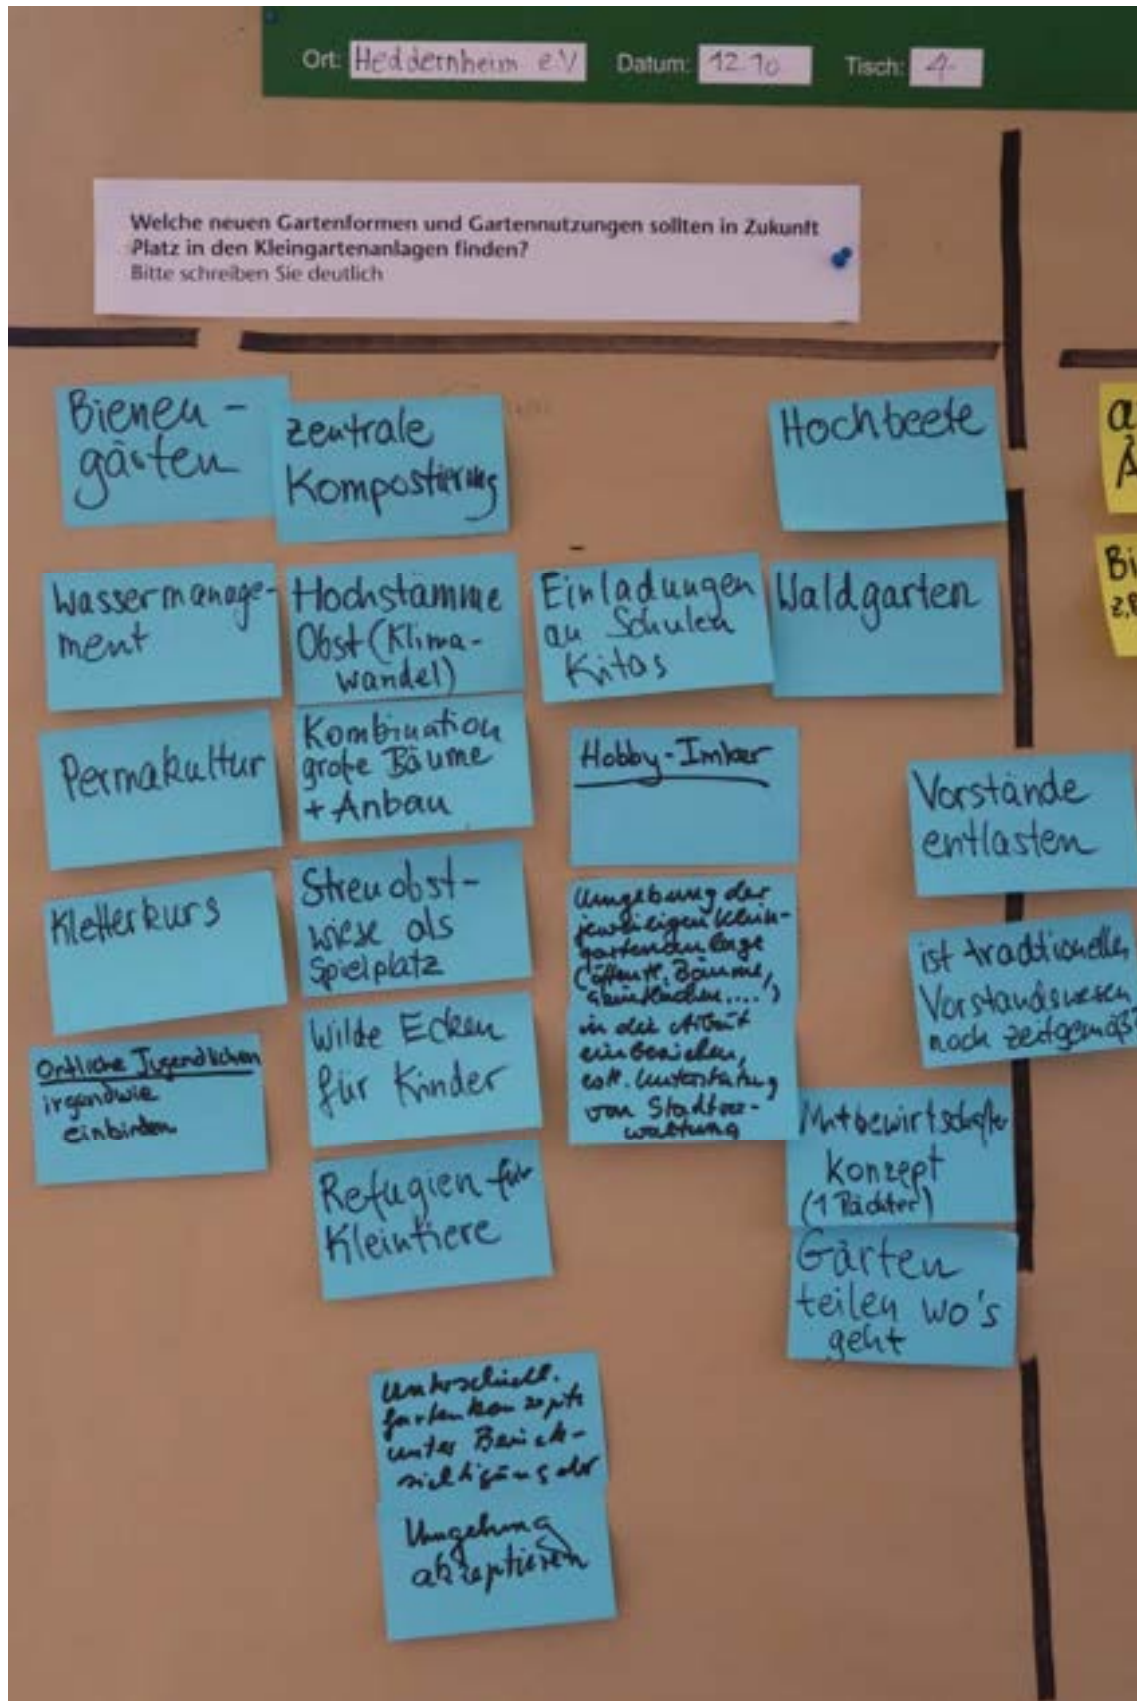 Ort: Heddernheim e.V Datum: 12.10 Tisch: 4
Welche neuen Gartenformen und Gartennutzungen sollten in Zukunft
Platz in den Kleingartenanlagen finden?
Bitte schreiben Sie deutlich
Bienen-
gärten
zentrale
Kompostierung
Hochbeete
Wassermanage-
ment
Hochstämme
Obst (Klima-
wandel)
Einladungen
an Schulen
Kitas
Waldgarten
Permakultur
Kombination
große Bäume
+ Anbau
Hobby-Imker
Vorstände
entlasten
Kletterkurs
Streuobst-
wiese als
Spielplatz
Umgebung der
jeweiligen Klein-
gartenanlage
(öffentl. Bäume,
in die Arbeit
einbeziehen,
Unterstützung
von Stadtver-
waltung
ist traditionelles
Vorstandswesen
noch zeitgemäß
Wilde Ecken
für Kinder
Örtliche Jugendlichen
irgendwie
einbinden
Refugien für
Kleintiere
Mitbewirtschafter
konzept
(1 Pächter)
Gärten
teilen wo's
geht
Unterschiedl.
Gartenkonzepte
unter Berück-
sichtigung der
Umgebung
akzeptieren
a
Bi
z.B